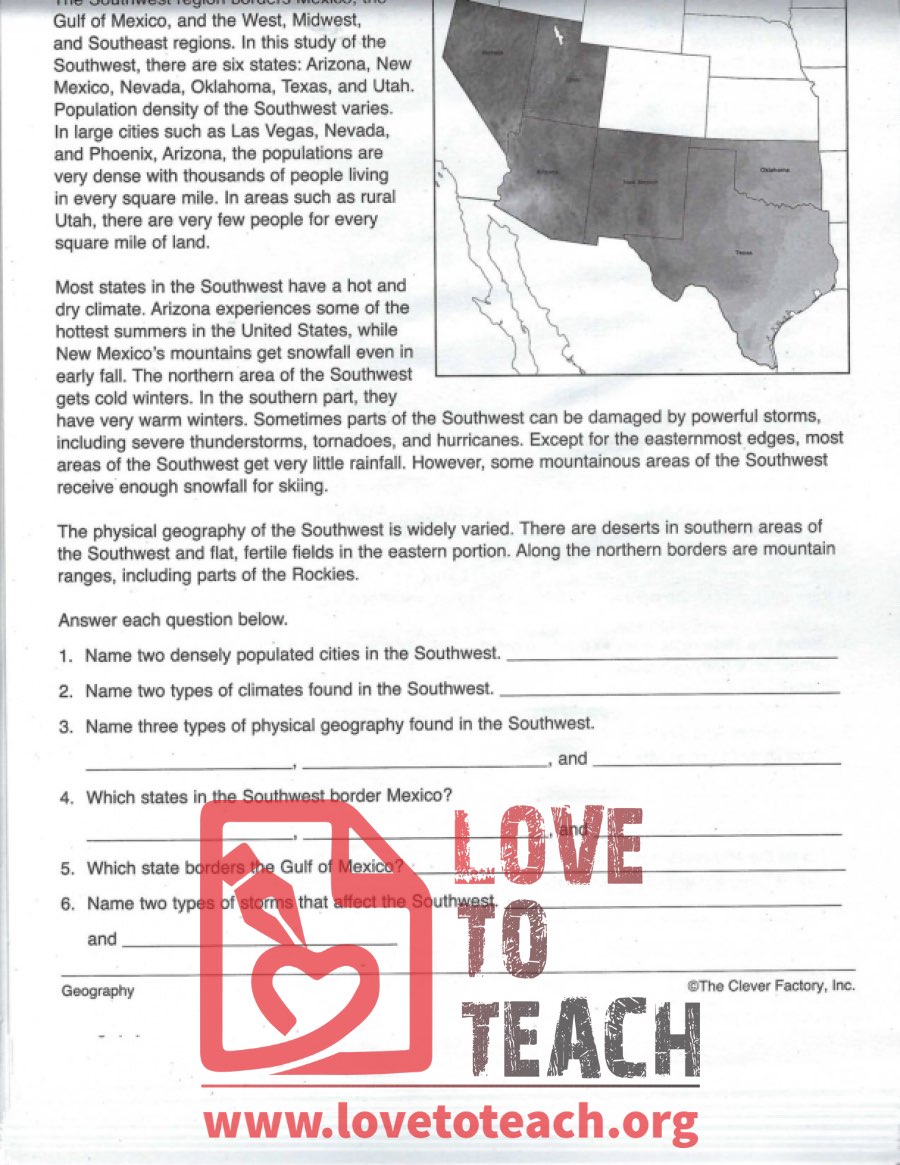 The Southwest region borders Mexico, the
Gulf of Mexico, and the West, Midwest,
and Southeast regions. In this study of the
Southwest, there are six states: Arizona, New
Mexico, Nevada, Oklahoma, Texas, and Utah.
Population density of the Southwest varies.
In large cities such as Las Vegas, Nevada,
and Phoenix, Arizona, the populations are
very dense with thousands of people living
in every square mile. In areas such as rural
Utah, there are very few people for every
square mile of land.
Nevada
Utah
Arizona
New Mexico
Oklahoma
Texas
Most states in the Southwest have a hot and
dry climate. Arizona experiences some of the
hottest summers in the United States, while
New Mexico's mountains get snowfall even in
early fall. The northern area of the Southwest
gets cold winters. In the southern part, they
have very warm winters. Sometimes parts of the Southwest can be damaged by powerful storms,
including severe thunderstorms, tornadoes, and hurricanes. Except for the easternmost edges, most
areas of the Southwest get very little rainfall. However, some mountainous areas of the Southwest
receive enough snowfall for skiing.
The physical geography of the Southwest is widely varied. There are deserts in southern areas of
the Southwest and flat, fertile fields in the eastern portion. Along the northern borders are mountain
ranges, including parts of the Rockies.
Answer each question below.
1. Name two densely populated cities in the Southwest.
2. Name two types of climates found in the Southwest.
3. Name three types of physical geography found in the Southwest.
, , and
4. Which states in the Southwest border Mexico?
, , and
5. Which state borders the Gulf of Mexico?
6. Name two types of storms that affect the Southwest.
and
Geography ©The Clever Factory, Inc.
LOVE
TO
TEACH
www.lovetoteach.org